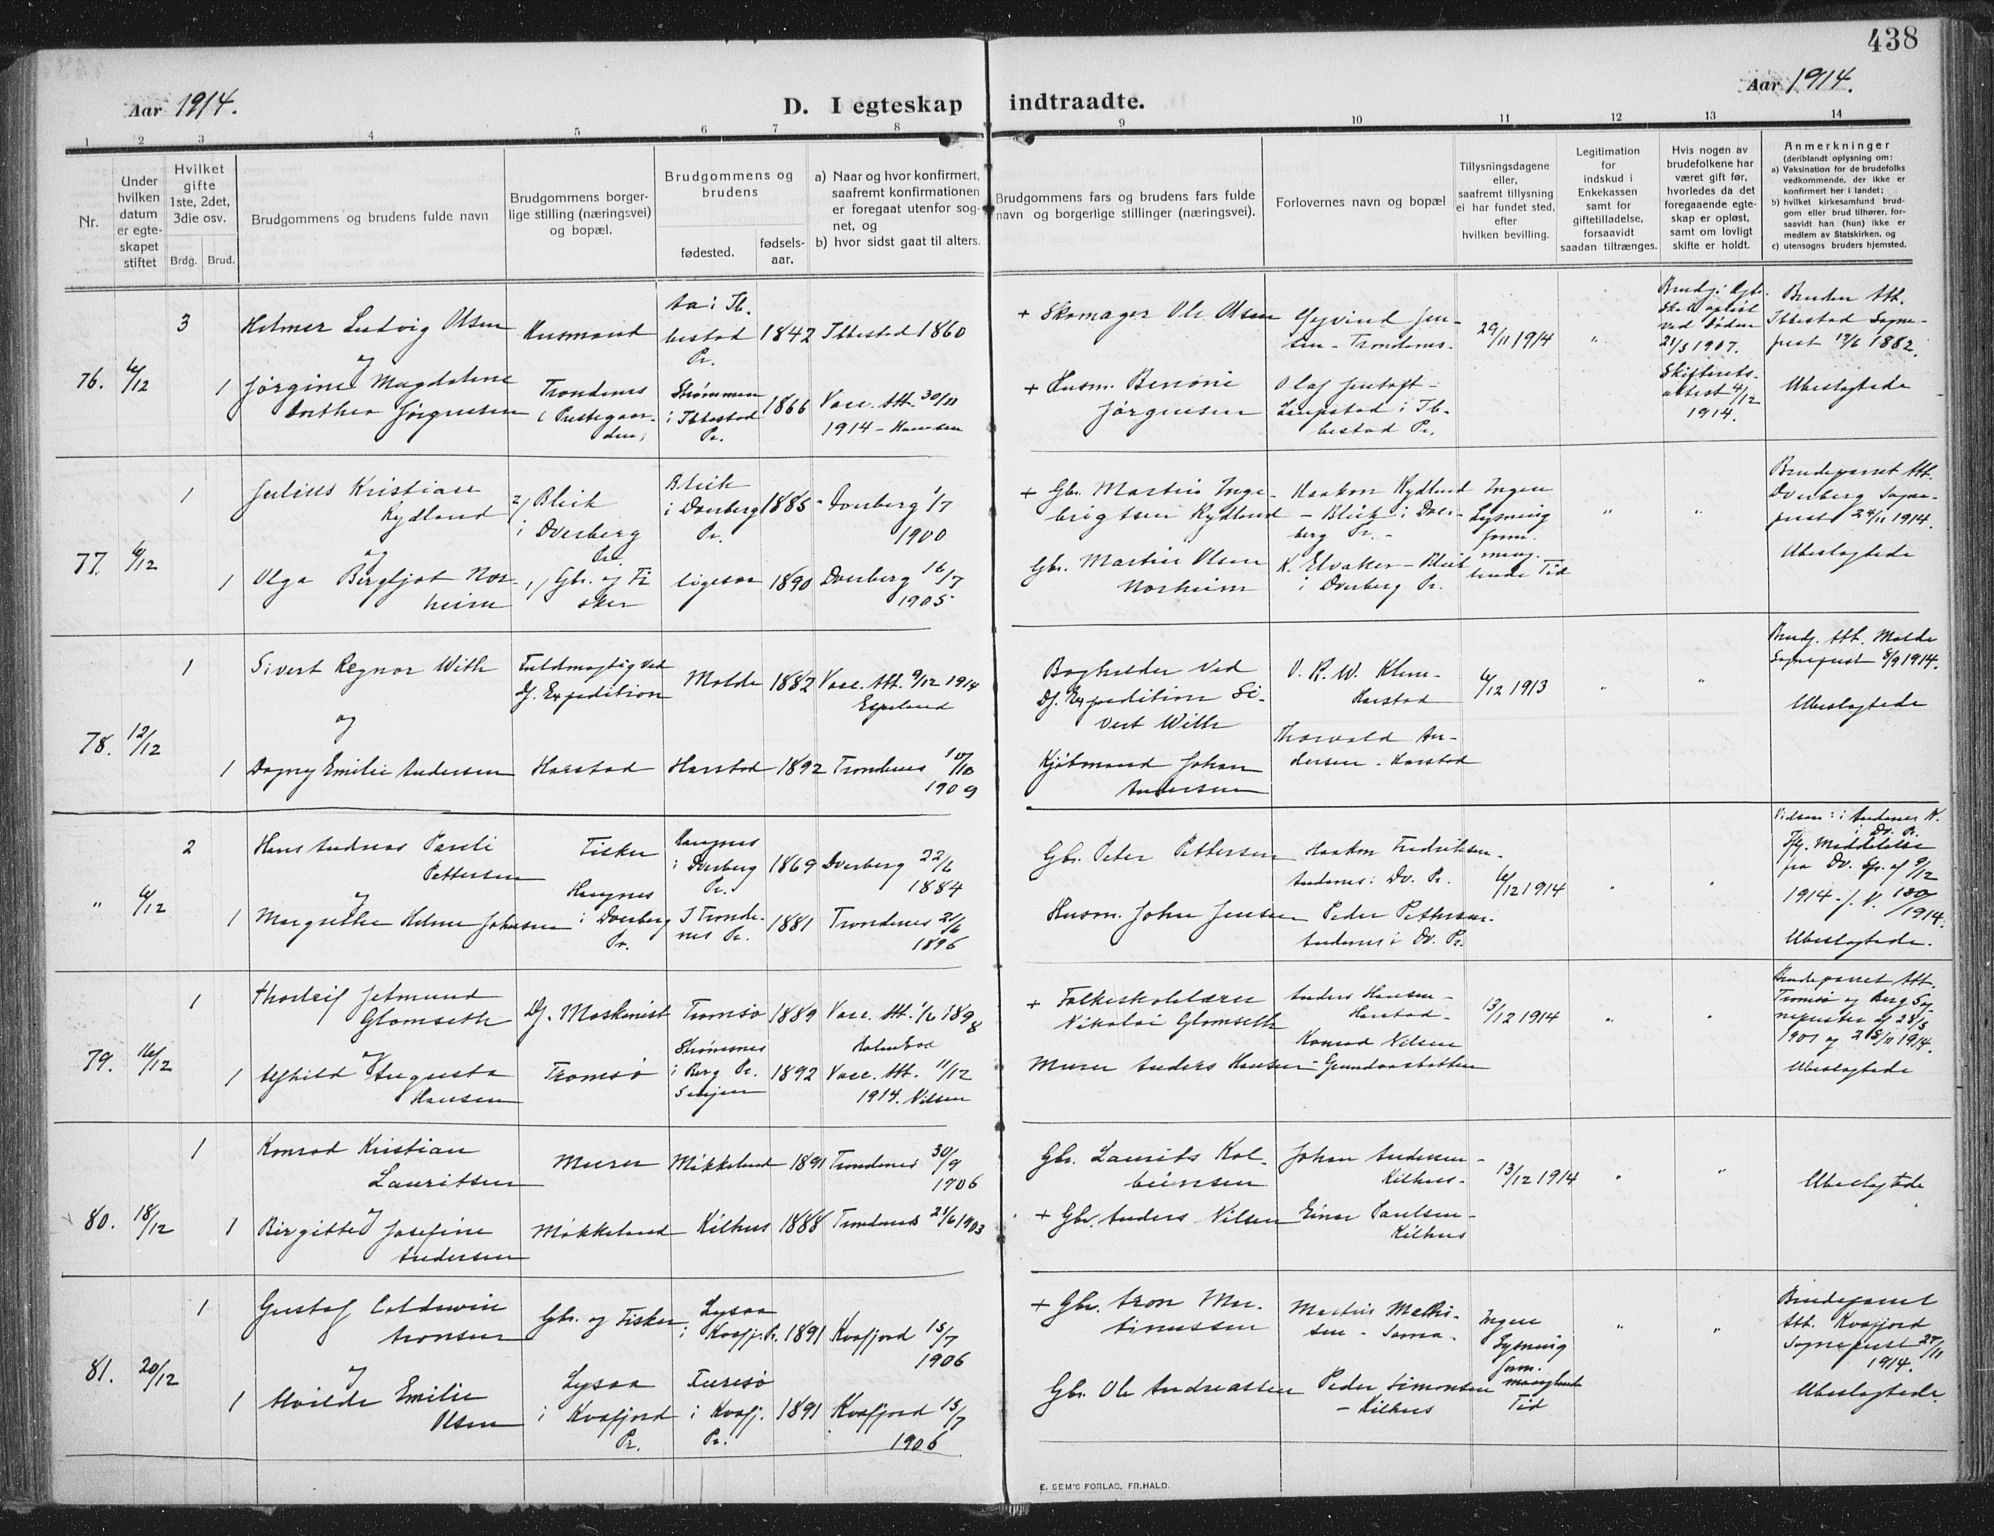 438
Aar 1914.
D. I egteskap indtraadte.
Aar 1914.
1 2 3 4 5 6 7 8 9 10 11 12 13 14
Nr.
Under hvilken datum er egteskapet stiftet
Hvilket gifte 1ste, 2det, 3die osv.
Brdg. Brud.
Brudgommens og brudens fulde navn
Brudgommens borgerlige stilling (næringsvei) og bopæl.
Brudgommens og brudens
fødested.
fødselsaar.
a) Naar og hvor konfirmert, saafremt konfirmationen er foregaat utenfor sognet, og
b) hvor sidst gaat til alters.
Brudgommens fars og brudens fars fulde navn og borgerlige stillinger (næringsvei).
Forlovernes navn og bopæl
Tillysningsdagene eller, saafremt tillysning ei har fundet sted, efter hvilken bevilling.
Legitimation for indskud i Enkekassen samt for giftetilladelse, forsaavidt saadan tiltrænges.
Hvis nogen av brudefolkene har været gift før, hvorledes da det foregaaende egteskap er opløst, samt om lovligt skifte er holdt.
Anmerkninger
(deriblandt oplysning om:
a) Vaksination for de brudefolks vedkommende, der ikke er konfirmert her i landet;
b) hvilket kirkesamfund brudgom eller brud tilhører, forsaavidt han (hun) ikke er medlem av Statskirken, og
c) utensogns bruders hjemsted.
76. 6/12
3 Helmer Ludvig Olsen
og
1 Jørgine Magdalene
Dorthea Jørgensen
Husmand
Trondenes
( Prestegaarden)
Aa i Ibbestad
Pr.
1842
Ibbestad 1860
Strømmen
i Ibbestad
Pr.
1866
Vacc. Att. 30/11
1914 - Hansen
+ Skomager Ole Olsen
+ Husm. Benoni
Jørgensen
Øyvind Jensen - Trondenes -
Olaf Jentoft -
Laupstad i Ibbestad Pr.
29/11 1914
"
Brudg. Egtesk. opløst
ved Døden
21/5 1907.
Skifterets-
attest 4/12
1914.
Bruden Att.
Ibbestad Sogneprest 17/6 1882.
Ubeslegtede
77. 6/12
1 Julius Kristian
Rydland
og
1 Olga Bergljot Norheim
2) Bleik
i Dverberg
Pr.
1) Gbr. og Fisker
Bleik
i Dverberg
Pr.
1885
Dverberg 1/7
1900
ligesaa
1890
Dverberg 16/7
1905
+ Gbr. Martin Ingebrigtsen Rydland
Gbr. Martin Olsen
Norheim
Haakon Rydland
- Bleik i Dverberg Pr. -
K. Elvaker - Bleik
i Dverberg Pr.
Ingen
Lysning
" "
Brudeparret Att.
Dverberg Sogneprest 24/11 1914.
Ubeslegtede
78. 12/12
1 Sivert Regnor With
og
1 Dagny Emilie Andersen
Fuldmægtig ved
Dj. Expedition
Harstad
Molde
1882
Vacc. Att. 9/12 1914
Espeland
Harstad
1892
Trondenes
1909
Bogholder ved
Dj. Expedition Sivert With
Kjøbmand Johan
Andersen
O. R. W. Klem -
Harstad
Thorvald Andersen - Harstad
6/12 1913
" "
Brudg. Att. Molde
Sogneprest 8/9 1914.
Ubeslegtede
" 6/12
2 Hans Andreas Pauli
Pettersen
og
1 Margrethe Helene Johnsen
Fisker
Haugnes
i Dverberg
Pr.
Haugnes
i Dverberg
Pr.
1869
Dverberg 22/6
1884
I Trondenes Pr.
1881
Trondenes 21/6
1896
Gbr. Peter Pettersen
Husm. John Jensen
Haakon Fredriksen -
Andenes i Dv. Pr.
Peder Pettersen -
Andenes i Dv. Pr.
6/12 1914
" "
Vidsen: i Andenes K.
i Dv. Pr.
Ifg. Meddelelse
fra Dv. Spr. af 9/12
1914 - j. N. 180/1914.
Ubeslegtede.
79. 16/12
1 Thorleif Jetmund
Glomseth
og
1 Alfhild Augusta
Hansen
Dj. Maskinist
Tromsø
Tromsø
1889
Vacc. Att. 1/6 1898
Holmboe
Strømsnes
i Berg Pr.
Senjen
1892
Vacc. Att. 11/12
1914. Nilsen
+ Folkeskolelærer
Nikolai Glomseth
Murer Anders Hansen
Anders Hansen -
Harstad -
Konrad Nilsen
- Grundarbotten
13/12 1914
" "
Brudeparret Att.
Tromsø og Berg Sogneprester af 28/5
1901 og 28/11 1914.
Ubeslegtede
80. 18/12
1 Konrad Kristian
Lauritsen
og
1 Birgitte Josefine
Andersen
Murer
Møkkeland
Møkkeland
1891
Trondenes 30/9
1906
Kilhus
1888
Trondenes 21/6 1903
Gbr. Laurits Kolbeinsen
+ Gbr. Anders Nilsen
Johan Andersen -
Kilhus -
Einar Paulsen -
Kilhus
13/12 1914
" "
Ubeslegtede
81. 20/12
1 Gustaf Coldevin
Aronsen
og
1 Alvilde Emilie
Olsen
Gbr. og Fisker
Lysaa
i Kvæfjord
Pr.
Lysaa
i Kvæfj. Pr.
1891
Kvæfjord 15/7
1906
Furesø
i Kvæfj.
Pr.
1891
Kvæfjord 15/7
1906
+ Gbr. Aron Martinussen
Gbr. Ole Andreassen
Martin Mathisen - Sama -
Peder Simonsen
- Kilhus
Ingen
Lysning
form.
manglende
Tid
" "
Brudeparret
Att. Kvæfjord
Sogneprest 27/11
1914.
Ubeslegtede.
E. SEM'S FORLAG, FR.HALD.